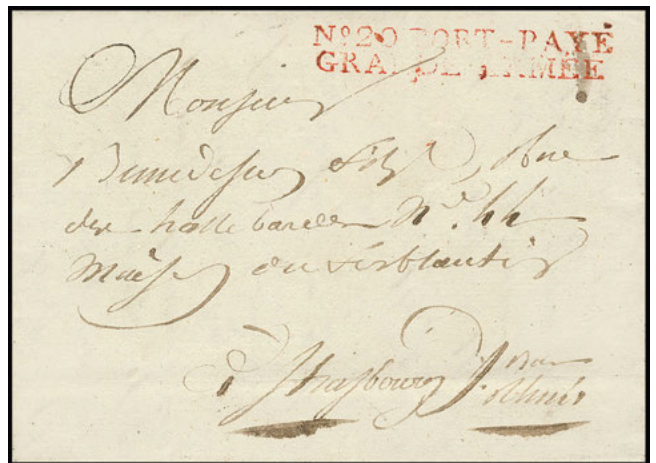 Nº 20 PORT-PAYÉ
GRANDE ARMÉE
Monsieur
fils, Rue
des hallebardes Nº. 44
Maison du ferblantier
à Strasbourg Bas
Rhin